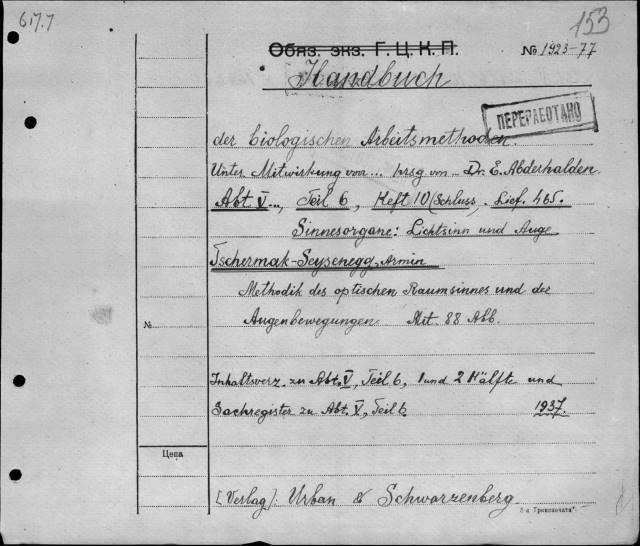 617.7
153
Обяз. экз. Г.Ц.К.П.
№ 1923-77
Handbuch
ПЕРЕРАБОТАНО
der biologischen Arbeitsmethoden.
Unter Mitwirkung von... hrsg von... Dr. E. Abderhalden.
Abt. V..., Teil 6, Heft 10 (Schluss), Lief. 465.
Sinnesorgane: Lichtsinn und Auge
Tschermak-Seysenegg, Armin
Methodik des optischen Raumsinnes und der
№
Augenbewegungen. Mit. 88 Abb.
Inhaltsverz. zu Abt. V, Teil 6, 1 und 2 Hälfte und
Sachregister zu Abt. V, Teil 6
1937.
Цена
[Verlag]: Urban & Schwarzenberg.